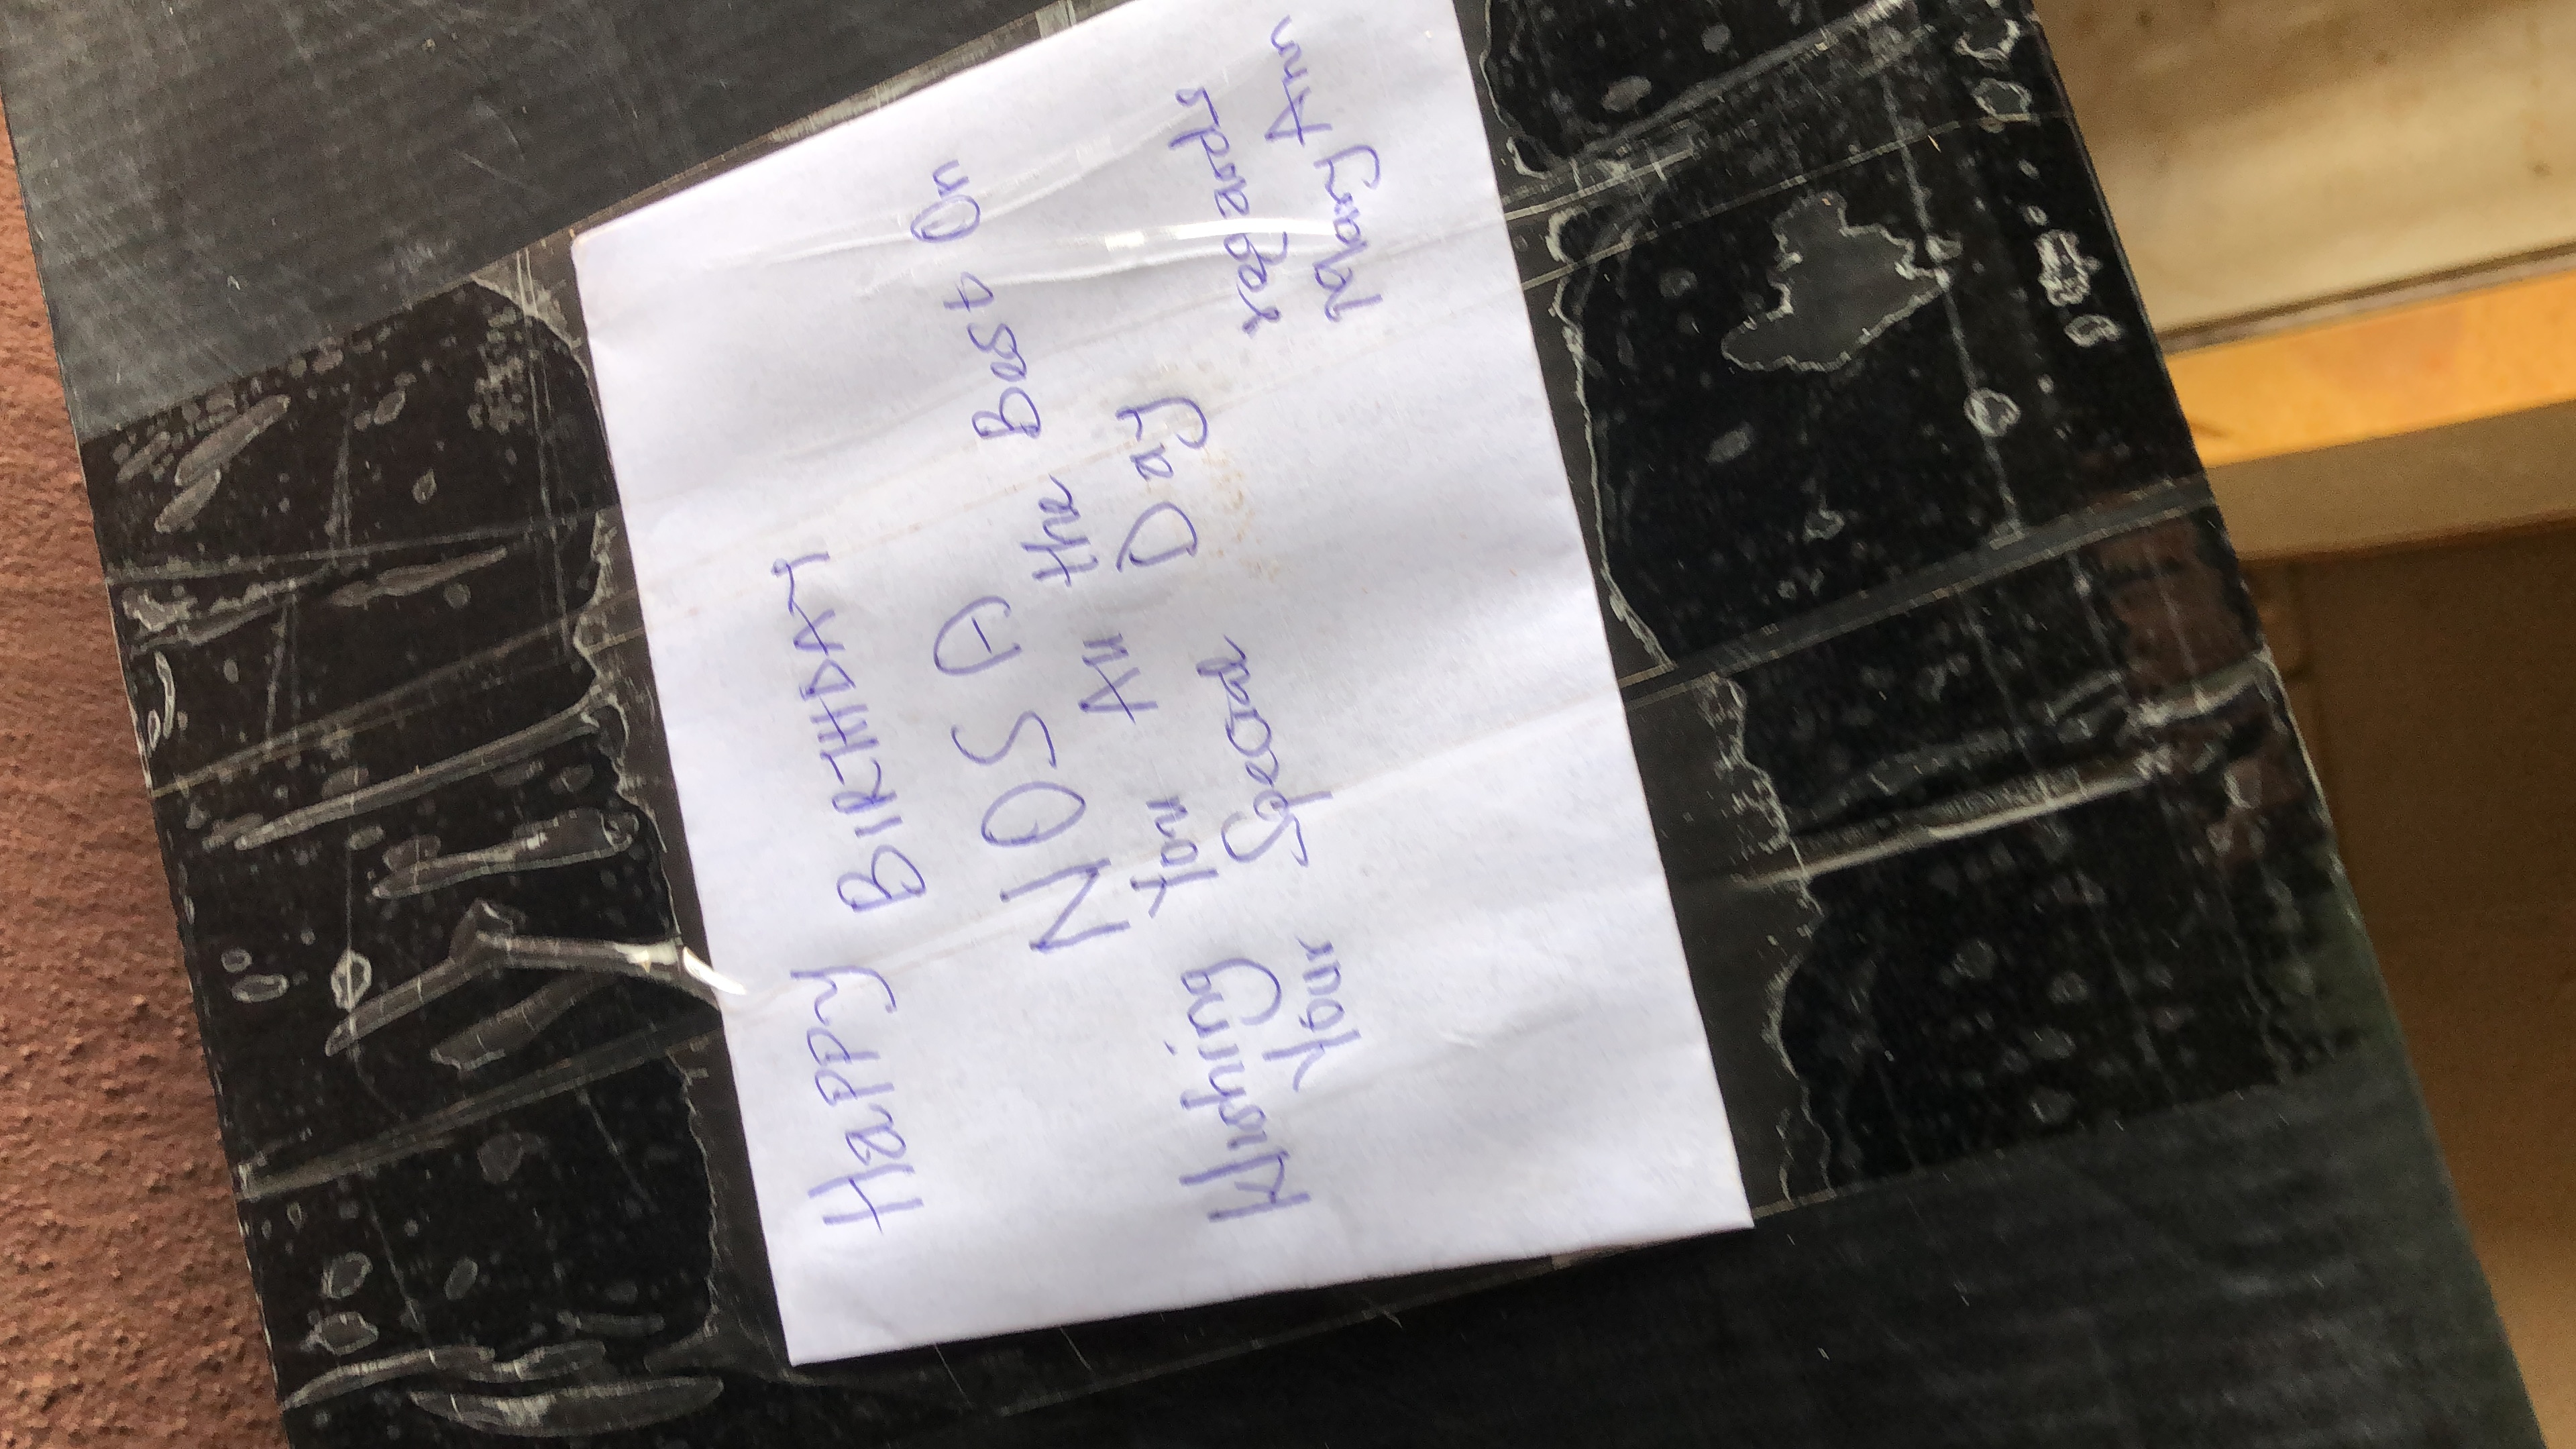 Happy BIRTHDAY
NOSA
Wishing You All the Best On
Your Special Day
regards
Mary Ann